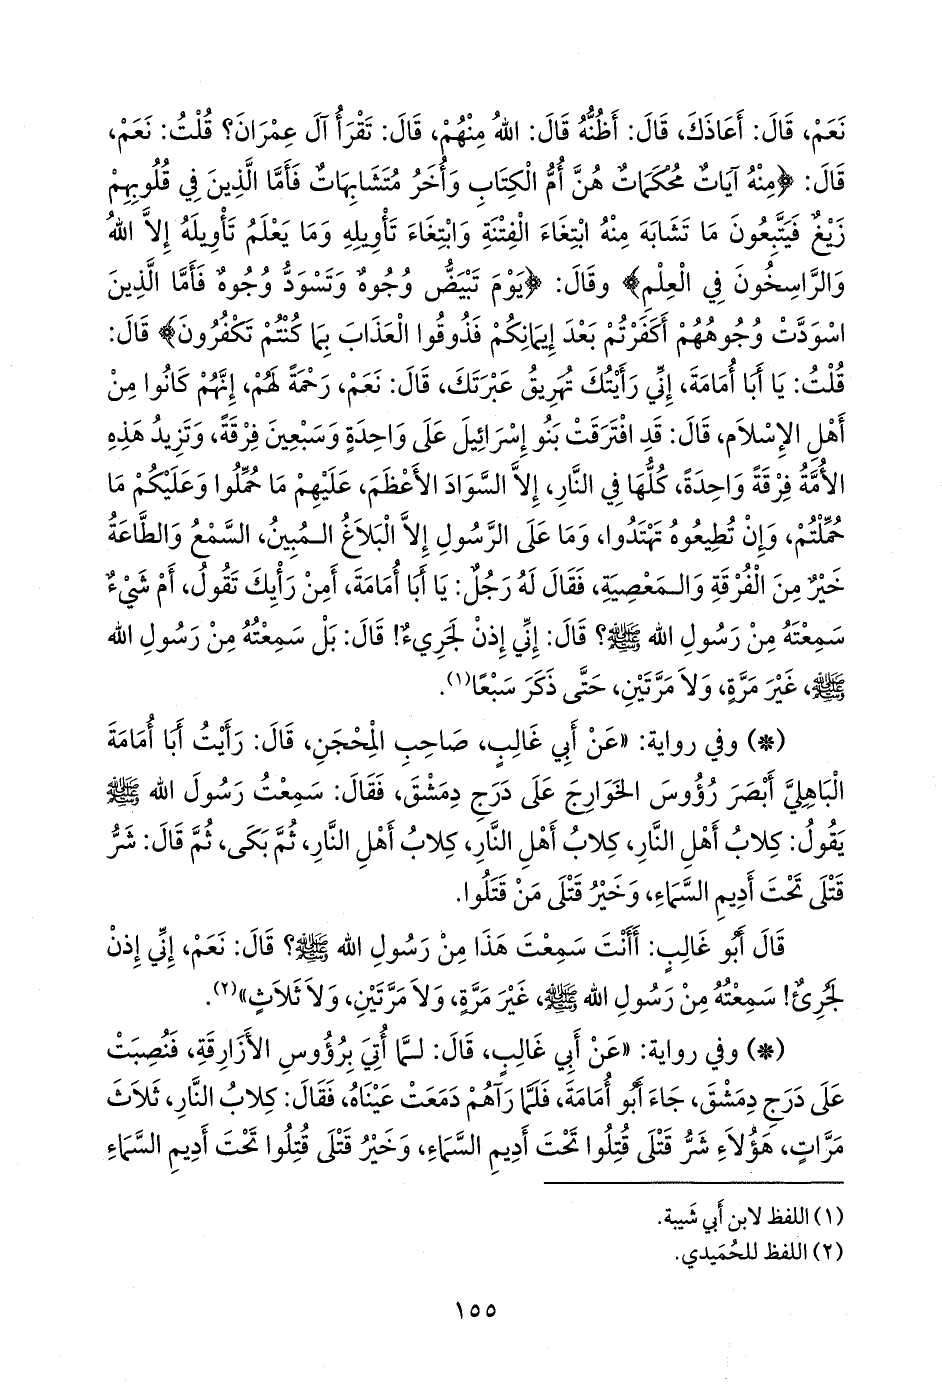 نَعَمْ، قَالَ: أَعَاذَكَ، قَالَ: أَظُنُّهُ قَالَ: اللهُ مِنْهُمْ، قَالَ: تَقْرَأُ آلَ عِمْرَانَ؟ قُلْتُ: نَعَمْ،
قَالَ: ﴿مِنْهُ آيَاتٌ مُحْكَمَاتٌ هُنَّ أُمُّ الْكِتَابِ وَأُخَرُ مُتَشَابِهَاتٌ فَأَمَّا الَّذِينَ فِي قُلُوبِهِمْ
زَيْغٌ فَيَتَّبِعُونَ مَا تَشَابَهَ مِنْهُ ابْتِغَاءَ الْفِتْنَةِ وَابْتِغَاءَ تَأْوِيلِهِ وَمَا يَعْلَمُ تَأْوِيلَهُ إِلاَّ اللهُ
وَالرَّاسِخُونَ فِي الْعِلْمِ﴾ وقَالَ: ﴿يَوْمَ تَبْيَضُّ وُجُوهٌ وَتَسْوَدُّ وُجُوهٌ فَأَمَّا الَّذِينَ
اسْوَدَّتْ وُجُوهُهُمْ أَكَفَرْتُمْ بَعْدَ إِيمَانِكُمْ فَذُوقُوا الْعَذَابَ بِمَا كُنْتُمْ تَكْفُرُونَ﴾ قَالَ:
قُلْتُ: يَا أَبَا أُمَامَةَ، إِنِّي رَأَيْتُكَ تُهَرِيقُ عَبْرَتَكَ، قَالَ: نَعَمْ، رَحْمَةً لَهُمْ، إِنَّهُمْ كَانُوا مِنْ
أَهْلِ الإِسْلاَمِ، قَالَ: قَدِ افْتَرَقَتْ بَنُو إِسْرَائِيلَ عَلَى وَاحِدَةٍ وَسَبْعِينَ فِرْقَةً، وَتَزِيدُ هَذِهِ
الأُمَّةُ فِرْقَةً وَاحِدَةً، كُلُّهَا فِي النَّارِ، إِلاَّ السَّوَادَ الأَعْظَمَ، عَلَيْهِمْ مَا حُمِّلُوا وَعَلَيْكُمْ مَا
حُمِّلْتُمْ، وَإِنْ تُطِيعُوهُ تَهْتَدُوا، وَمَا عَلَى الرَّسُولِ إِلاَّ الْبَلاَغُ الـمُبِينُ، السَّمْعُ وَالطَّاعَةُ
خَيْرٌ مِنَ الْفُرْقَةِ وَالـمَعْصِيَةِ، فَقَالَ لَهُ رَجُلٌ: يَا أَبَا أُمَامَةَ، أَمِنْ رَأْيِكَ تَقُولُ، أَمْ شَيْءٌ
سَمِعْتَهُ مِنْ رَسُولِ الله ﷺ؟ قَالَ: إِنِّي إِذَنْ لَجَرِيءٌ! قَالَ: بَلْ سَمِعْتُهُ مِنْ رَسُولِ الله
ﷺ، غَيْرَ مَرَّةٍ، وَلاَ مَرَّتَيْنِ، حَتَّى ذَكَرَ سَبْعًا(١).
(*) وفي رواية: «عَنْ أَبِي غَالِبٍ، صَاحِبِ المِحْجَنِ، قَالَ: رَأَيْتُ أَبَا أُمَامَةَ
الْبَاهِلِيَّ أَبْصَرَ رُؤُوسَ الخَوَارِجِ عَلَى دَرَجِ دِمَشْقَ، فَقَالَ: سَمِعْتُ رَسُولَ الله ﷺ
يَقُولُ: كِلاَبُ أَهْلِ النَّارِ، كِلاَبُ أَهْلِ النَّارِ، كِلاَبُ أَهْلِ النَّارِ، ثُمَّ بَكَى، ثُمَّ قَالَ: شَرُّ
قَتْلَى تَحْتَ أَدِيمِ السَّمَاءِ، وَخَيْرُ قَتْلَى مَنْ قَتَلُوا.
قَالَ أَبُو غَالِبٍ: أَأَنْتَ سَمِعْتَ هَذَا مِنْ رَسُولِ الله ﷺ؟ قَالَ: نَعَمْ، إِنِّي إِذَنْ
لَجَرِئٌ! سَمِعْتُهُ مِنْ رَسُولِ الله ﷺ، غَيْرَ مَرَّةٍ، وَلاَ مَرَّتَيْنِ، وَلاَ ثَلاَثٍ»(٢).
(*) وفي رواية: «عَنْ أَبِي غَالِبٍ، قَالَ: لـمَّا أُتِيَ بِرُؤُوسِ الأَزَارِقَةِ، فَنُصِبَتْ
عَلَى دَرَجِ دِمَشْقَ، جَاءَ أَبُو أُمَامَةَ، فَلَمَّا رَآهُمْ دَمَعَتْ عَيْنَاهُ، فَقَالَ: كِلاَبُ النَّارِ، ثَلاَثَ
مَرَّاتٍ، هَؤُلاَءِ شَرُّ قَتْلَى قُتِلُوا تَحْتَ أَدِيمِ السَّمَاءِ، وَخَيْرُ قَتْلَى قُتِلُوا تَحْتَ أَدِيمِ السَّمَاءِ
(١) اللفظ لابن أَبي شَيبة.
(٢) اللفظ للحُمَيدي.
١٥٥